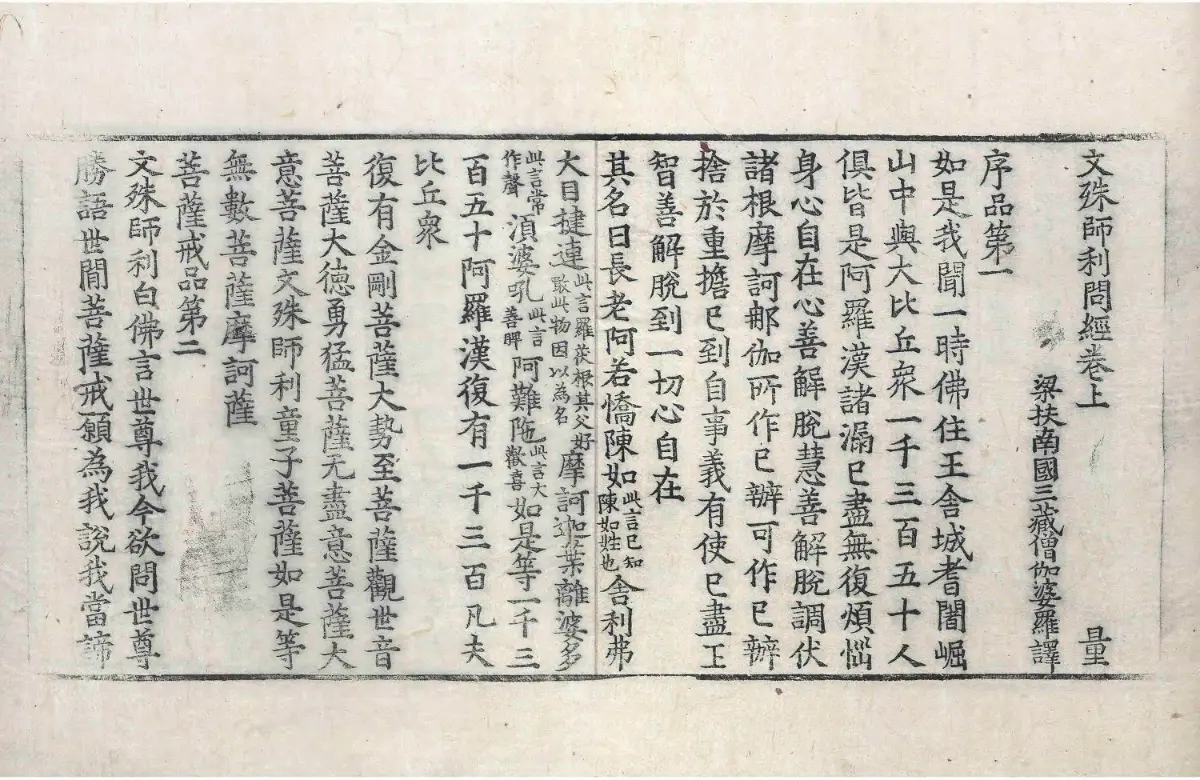 文殊師利問經卷上 量
梁扶南國三藏僧伽婆羅譯
序品第一
如是我聞一時佛住王舍城耆闍崛
山中與大比丘眾一千三百五十人
俱皆是阿羅漢諸漏已盡無復煩惱
身心自在心善解脫慧善解脫調伏
諸根摩訶那伽所作已辦可作已辦
捨於重擔已到自事義有使已盡正
智善解脫到一切心自在
其名曰長老阿若憍陳如此言已知陳如姓也舍利弗
大目揵連此言羅茯根其父好噉此物因以為名摩訶迦葉離婆多
此言常作聲須婆吼此言善脾阿難陁此言大歡喜如是等一千三
百五十阿羅漢復有一千三百凡夫
比丘眾
復有金剛菩薩大勢至菩薩觀世音
菩薩大德勇猛菩薩无盡意菩薩大
意菩薩文殊師利童子菩薩如是等
無數菩薩摩訶薩
菩薩戒品第二
文殊師利白佛言世尊我今欲問世尊
勝語世間菩薩戒願為我說我當諦